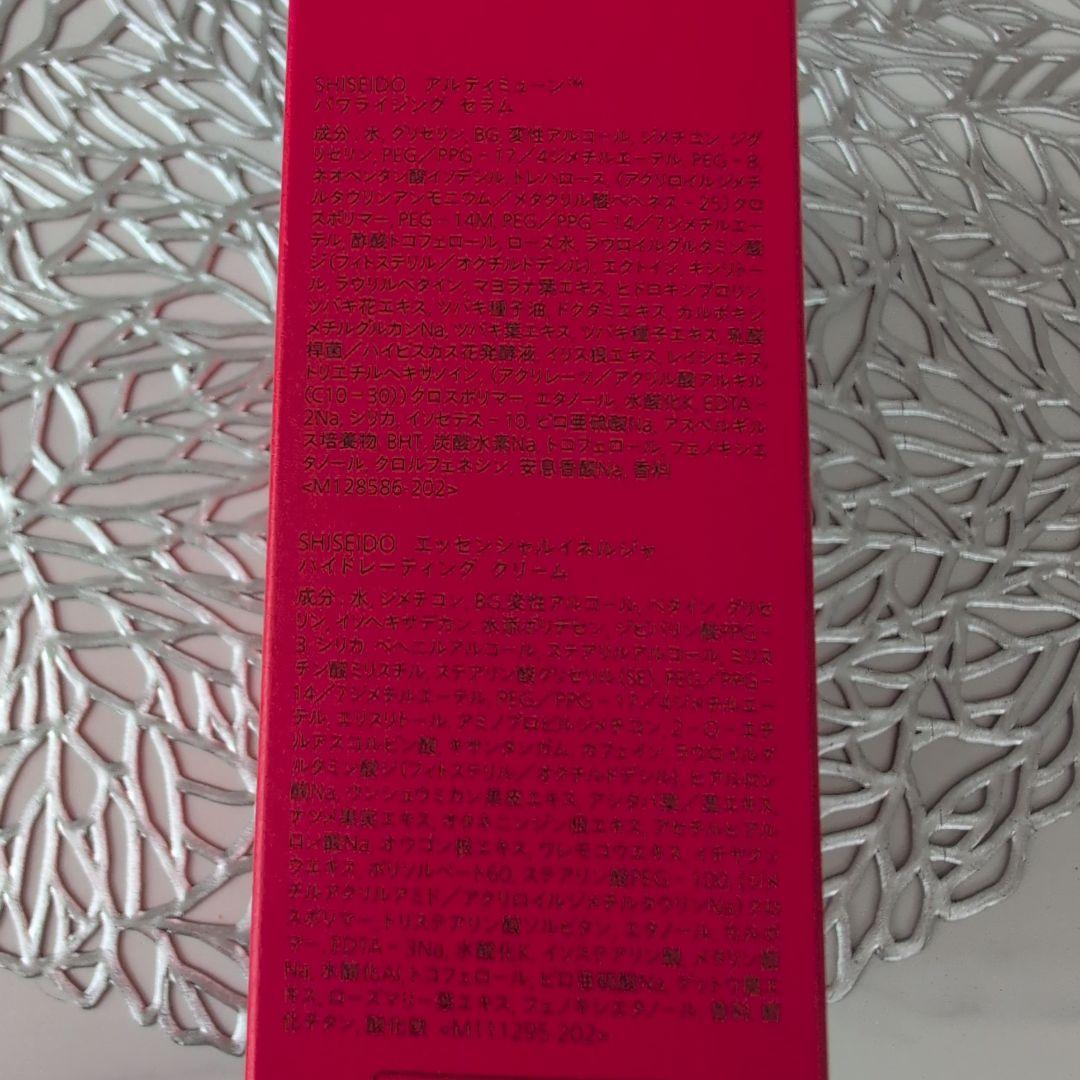 SHISEIDO アルティミューン™
パワライジング セラム
成分：水, グリセリン, BG, 変性アルコール, ジメチコン, ジグ
リセリン, PEG／PPG－17／4ジメチルエーテル, PEG－8,
ネオペンタン酸イソデシル, トレハロース, （アクリロイルジメチ
ルタウリンアンモニウム／メタクリル酸ベヘネス－25）クロ
スポリマー, PEG－14M, PEG／PPG－14／7ジメチルエー
テル, 酢酸トコフェロール, ローズ水, ラウロイルグルタミン酸
ジ（フィトステリル／オクチルドデシル）, エクトイン, キシリトー
ル, ラウリルベタイン, マヨラナ葉エキス, ヒドロキシプロリン,
ツバキ花エキス, ツバキ種子油, ドクダミエキス, カルボキシ
メチルグルカンNa, ツバキ葉エキス, ツバキ種子エキス, 乳酸
桿菌／ハイビスカス花発酵液, イリス根エキス, レイシエキス,
トリエチルヘキサノイン, （アクリレーツ／アクリル酸アルキル
（C10－30））クロスポリマー, エタノール, 水酸化K, EDTA－
2Na, シリカ, イソセテス－10, ピロ亜硫酸Na, アスペルギル
ス培養物, BHT, 炭酸水素Na, トコフェロール, フェノキシエ
タノール, クロルフェネシン, 安息香酸Na, 香料
<M128586-202>
SHISEIDO エッセンシャルイネルジャ
ハイドレーティング クリーム
成分：水, ジメチコン, BG, 変性アルコール, ベタイン, グリセ
リン, イソヘキサデカン, 水添ポリデセン, ジピバリン酸PPG－
3, シリカ, ベヘニルアルコール, ステアリルアルコール, ミリス
チン酸ミリスチル, ステアリン酸グリセリル（SE）, PEG／PPG－
14／7ジメチルエーテル, PEG／PPG－17／4ジメチルエー
テル, エリスリトール, アミノプロピルジメチコン, 2－O－エチ
ルアスコルビン酸, キサンタンガム, カフェイン, ラウロイルグ
ルタミン酸ジ（フィトステリル／オクチルドデシル）, ヒアルロン
酸Na, ウンシュウミカン果皮エキス, アシタバ葉／茎エキス,
ナツメ果実エキス, オタネニンジン根エキス, アセチルヒアル
ロン酸Na, オウゴン根エキス, ワレモコウエキス, イチヤクソ
ウエキス, ポリソルベート60, ステアリン酸PEG－100, （ジメ
チルアクリルアミド／アクリロイルジメチルタウリンNa）クロ
スポリマー, トリステアリン酸ソルビタン, エタノール, カルボ
マー, EDTA－3Na, 水酸化K, イソステアリン酸, メタリン酸
Na, 水酸化Al, トコフェロール, ピロ亜硫酸Na, ゲットウ葉エ
キス, ローズマリー葉エキス, フェノキシエタノール, 香料, 酸
化チタン, 酸化鉄 <M111295-202>